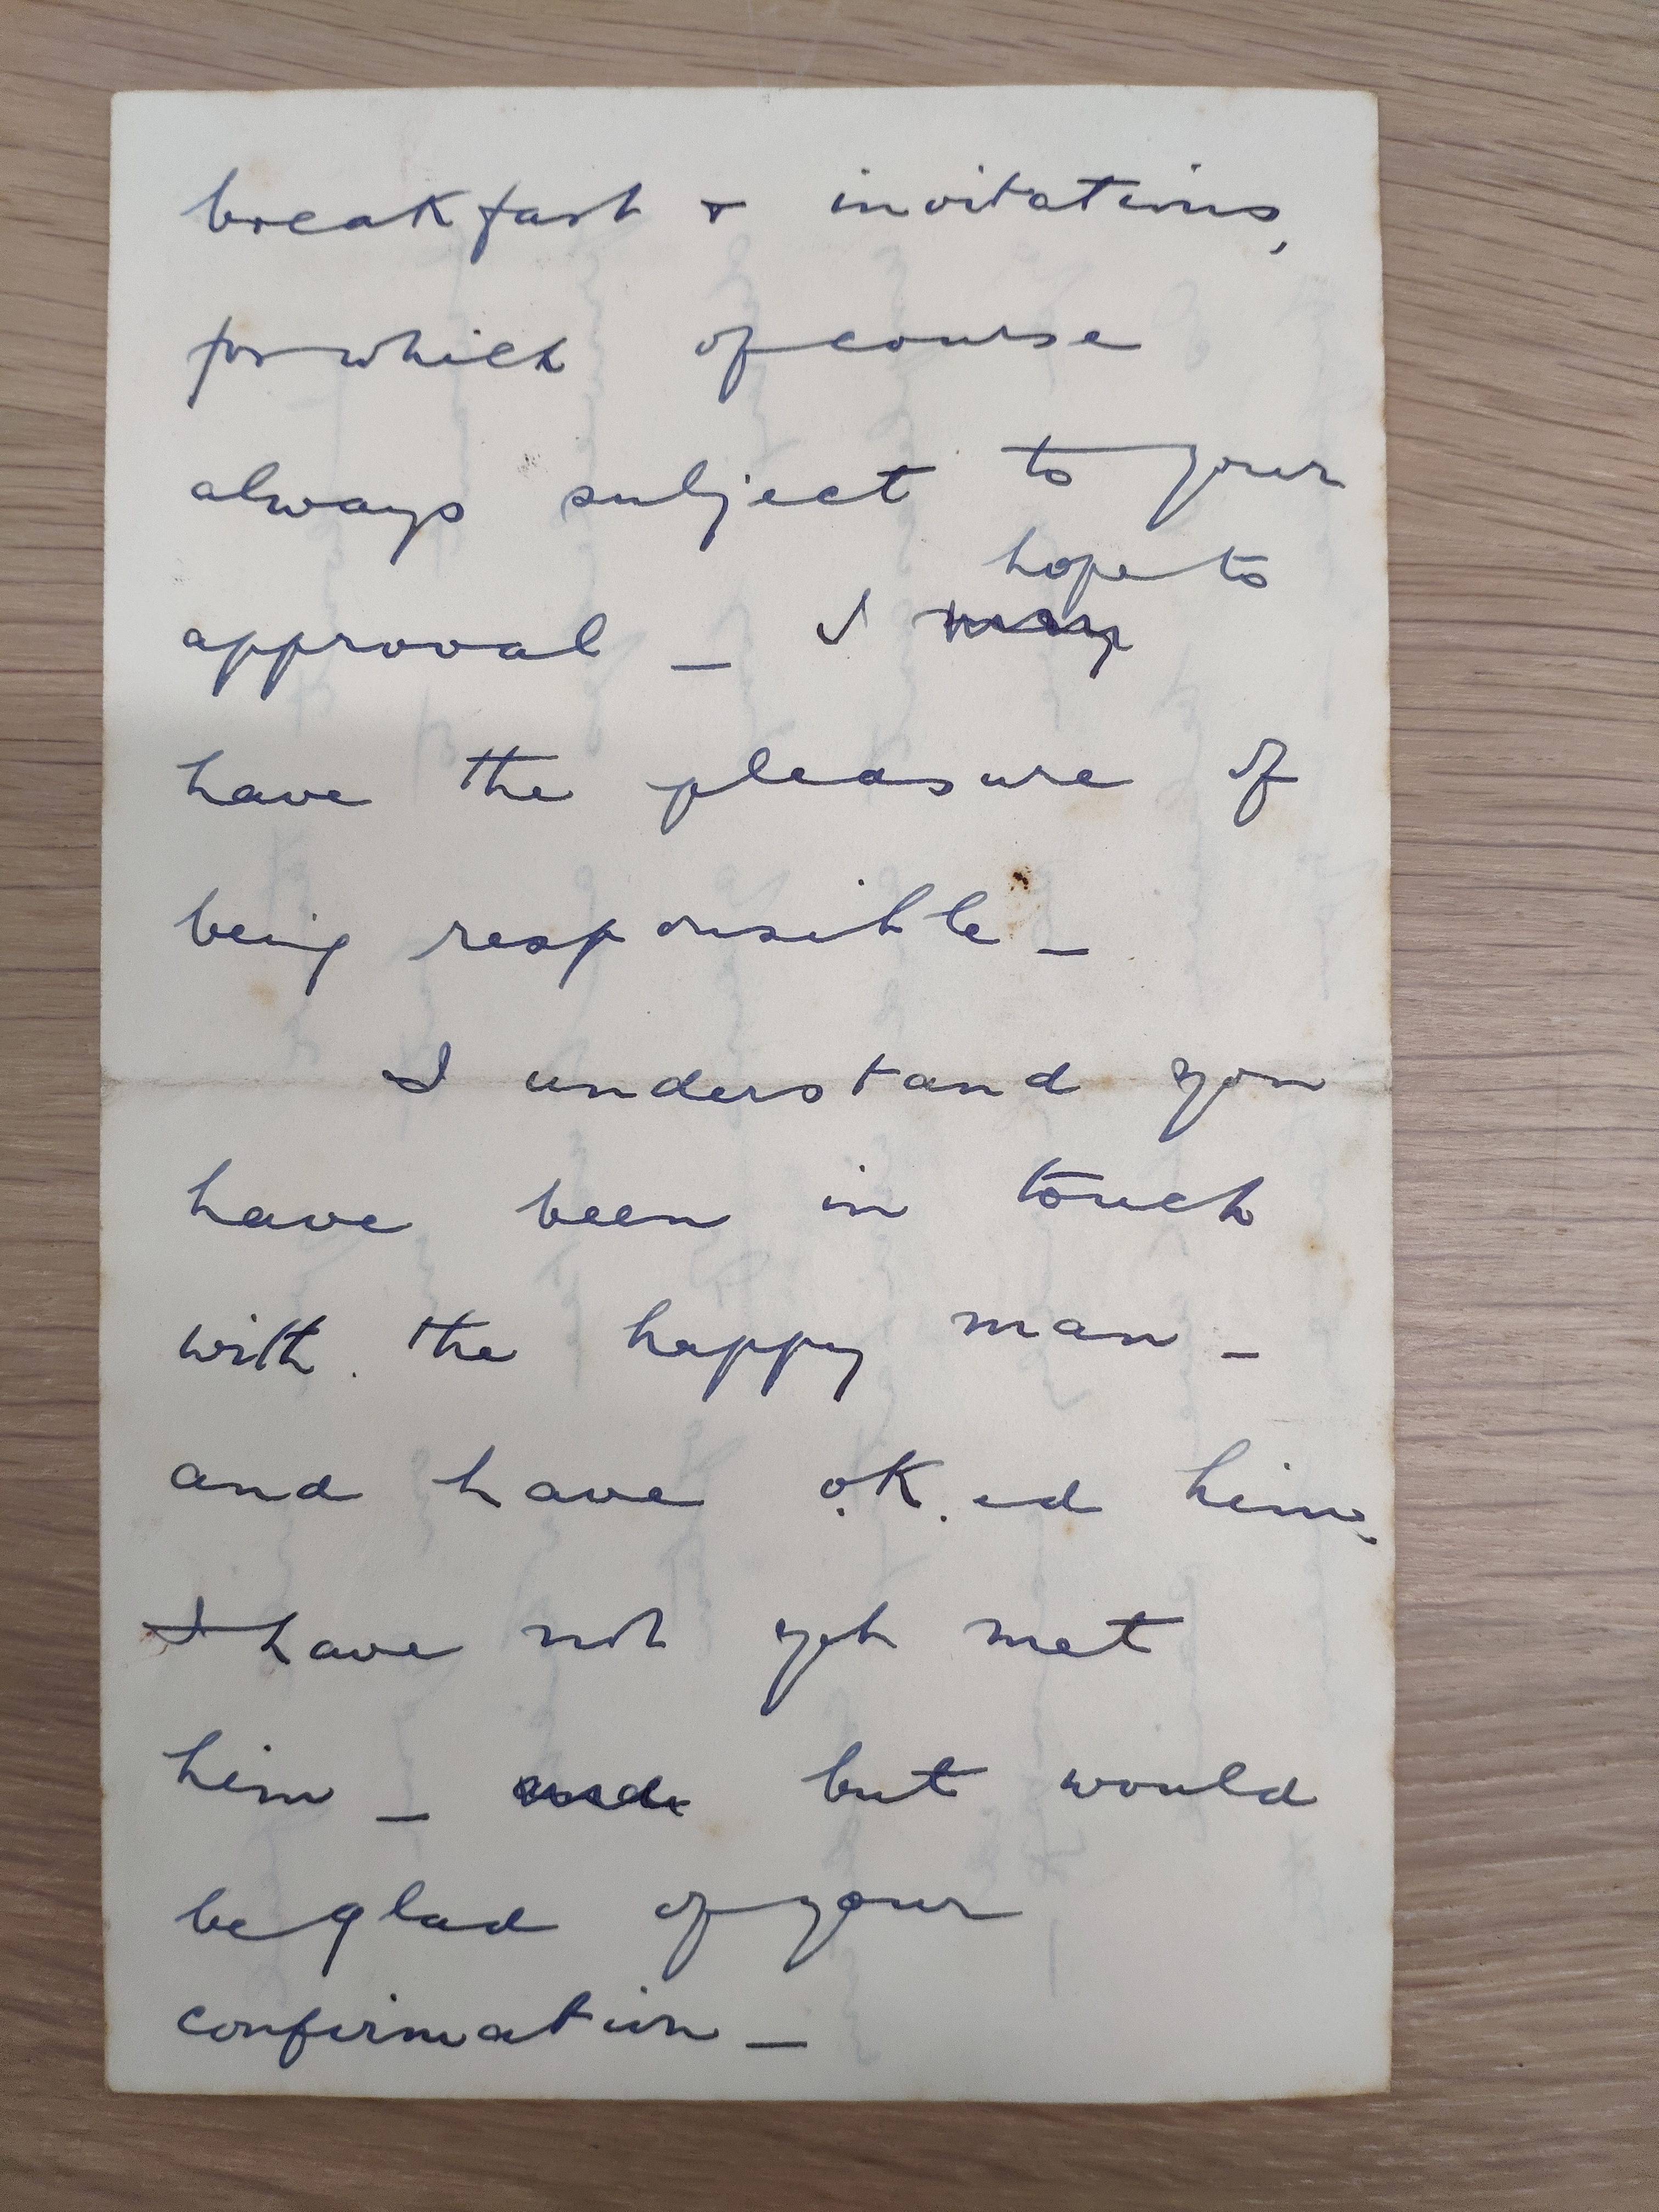 breakfast & invitations,
for which of course
always subject to your
hope to
approval _ I may
have the pleasure of
being responsible _
I understand you
have been in touch
with the happy man _
and have o.K.ed him.
I have not yet met
him _ and but would
be glad of your
confirmation _